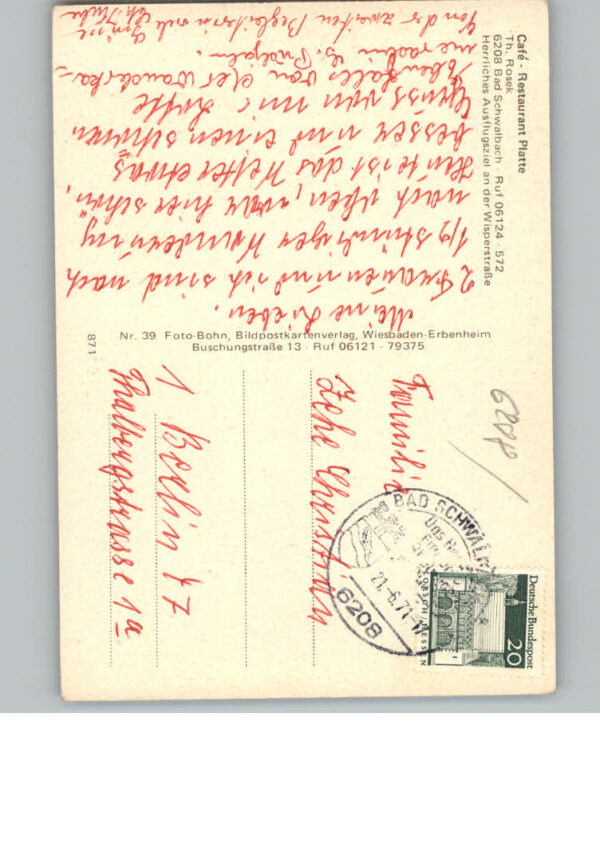 Café - Restaurant Platte
Th. Rosek
6208 Bad Schwalbach · Ruf 06124 · 572
Herrliches Ausflugsziel an der Wisperstraße
Meine Lieben.
2 Frauen und ich sind nach
stündiger Wanderung
nach oben, war hier schön,
Heute ist das Wetter etwas
besser und einen schönen
Gruss von mir Lotte
Ebenfalls von der Wanderka-
meradin G.
Von der zweiten Begleiterin viele Grüsse
Nr. 39 Foto-Bohn, Bildpostkartenverlag, Wiesbaden-Erbenheim
Buschungstraße 13 · Ruf 06121 - 79375
871
Familie
Christian
1 Berlin 47
Thalbergstrasse 1a
6208
BAD SCHWALBACH
21.-6.71-17
6208
Deutsche Bundespost
20
LORSCH HESSEN